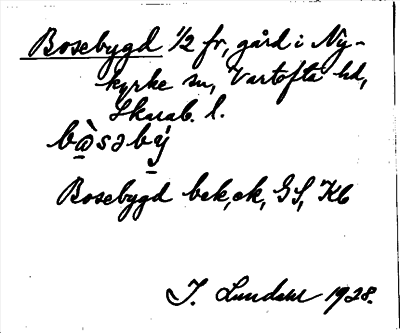 Bosebygd 1/2 fr, gård i Ny-
kyrke sn, Vartofta hd,
Skarab. l.
bɷ̀səbý
Bosebygd bek, ek, GS, Kb
I. Lundahl 1928.